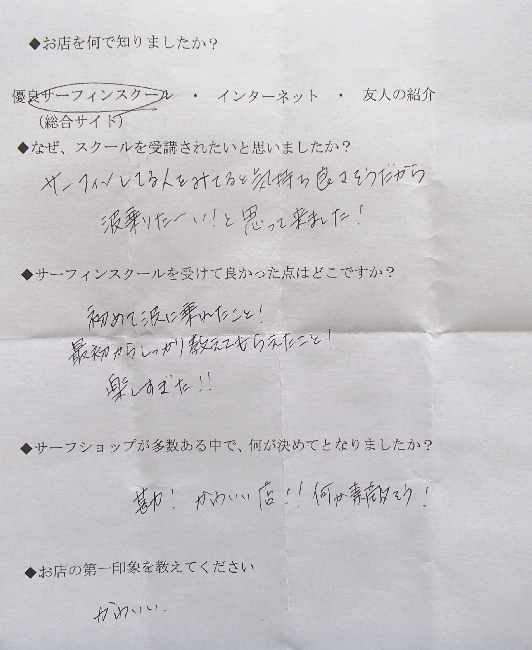 ◆お店を何で知りましたか？
優良サーフィンスクール ・ インターネット ・ 友人の紹介
（総合サイト）
◆なぜ、スクールを受講されたいと思いましたか？
サーフィンしてる人をみてると気持ち良さそうだから
波乗りたーい！と思って来ました！
◆サーフィンスクールを受けて良かった点はどこですか？
初めて波に乗れたこと！
最初からしっかり教えてもらえたこと！
楽しすぎた！！
◆サーフショップが多数ある中で、何が決めてとなりましたか？
勘！ かわいい店！！何か素敵そう！
◆お店の第一印象を教えてください
かわいい．